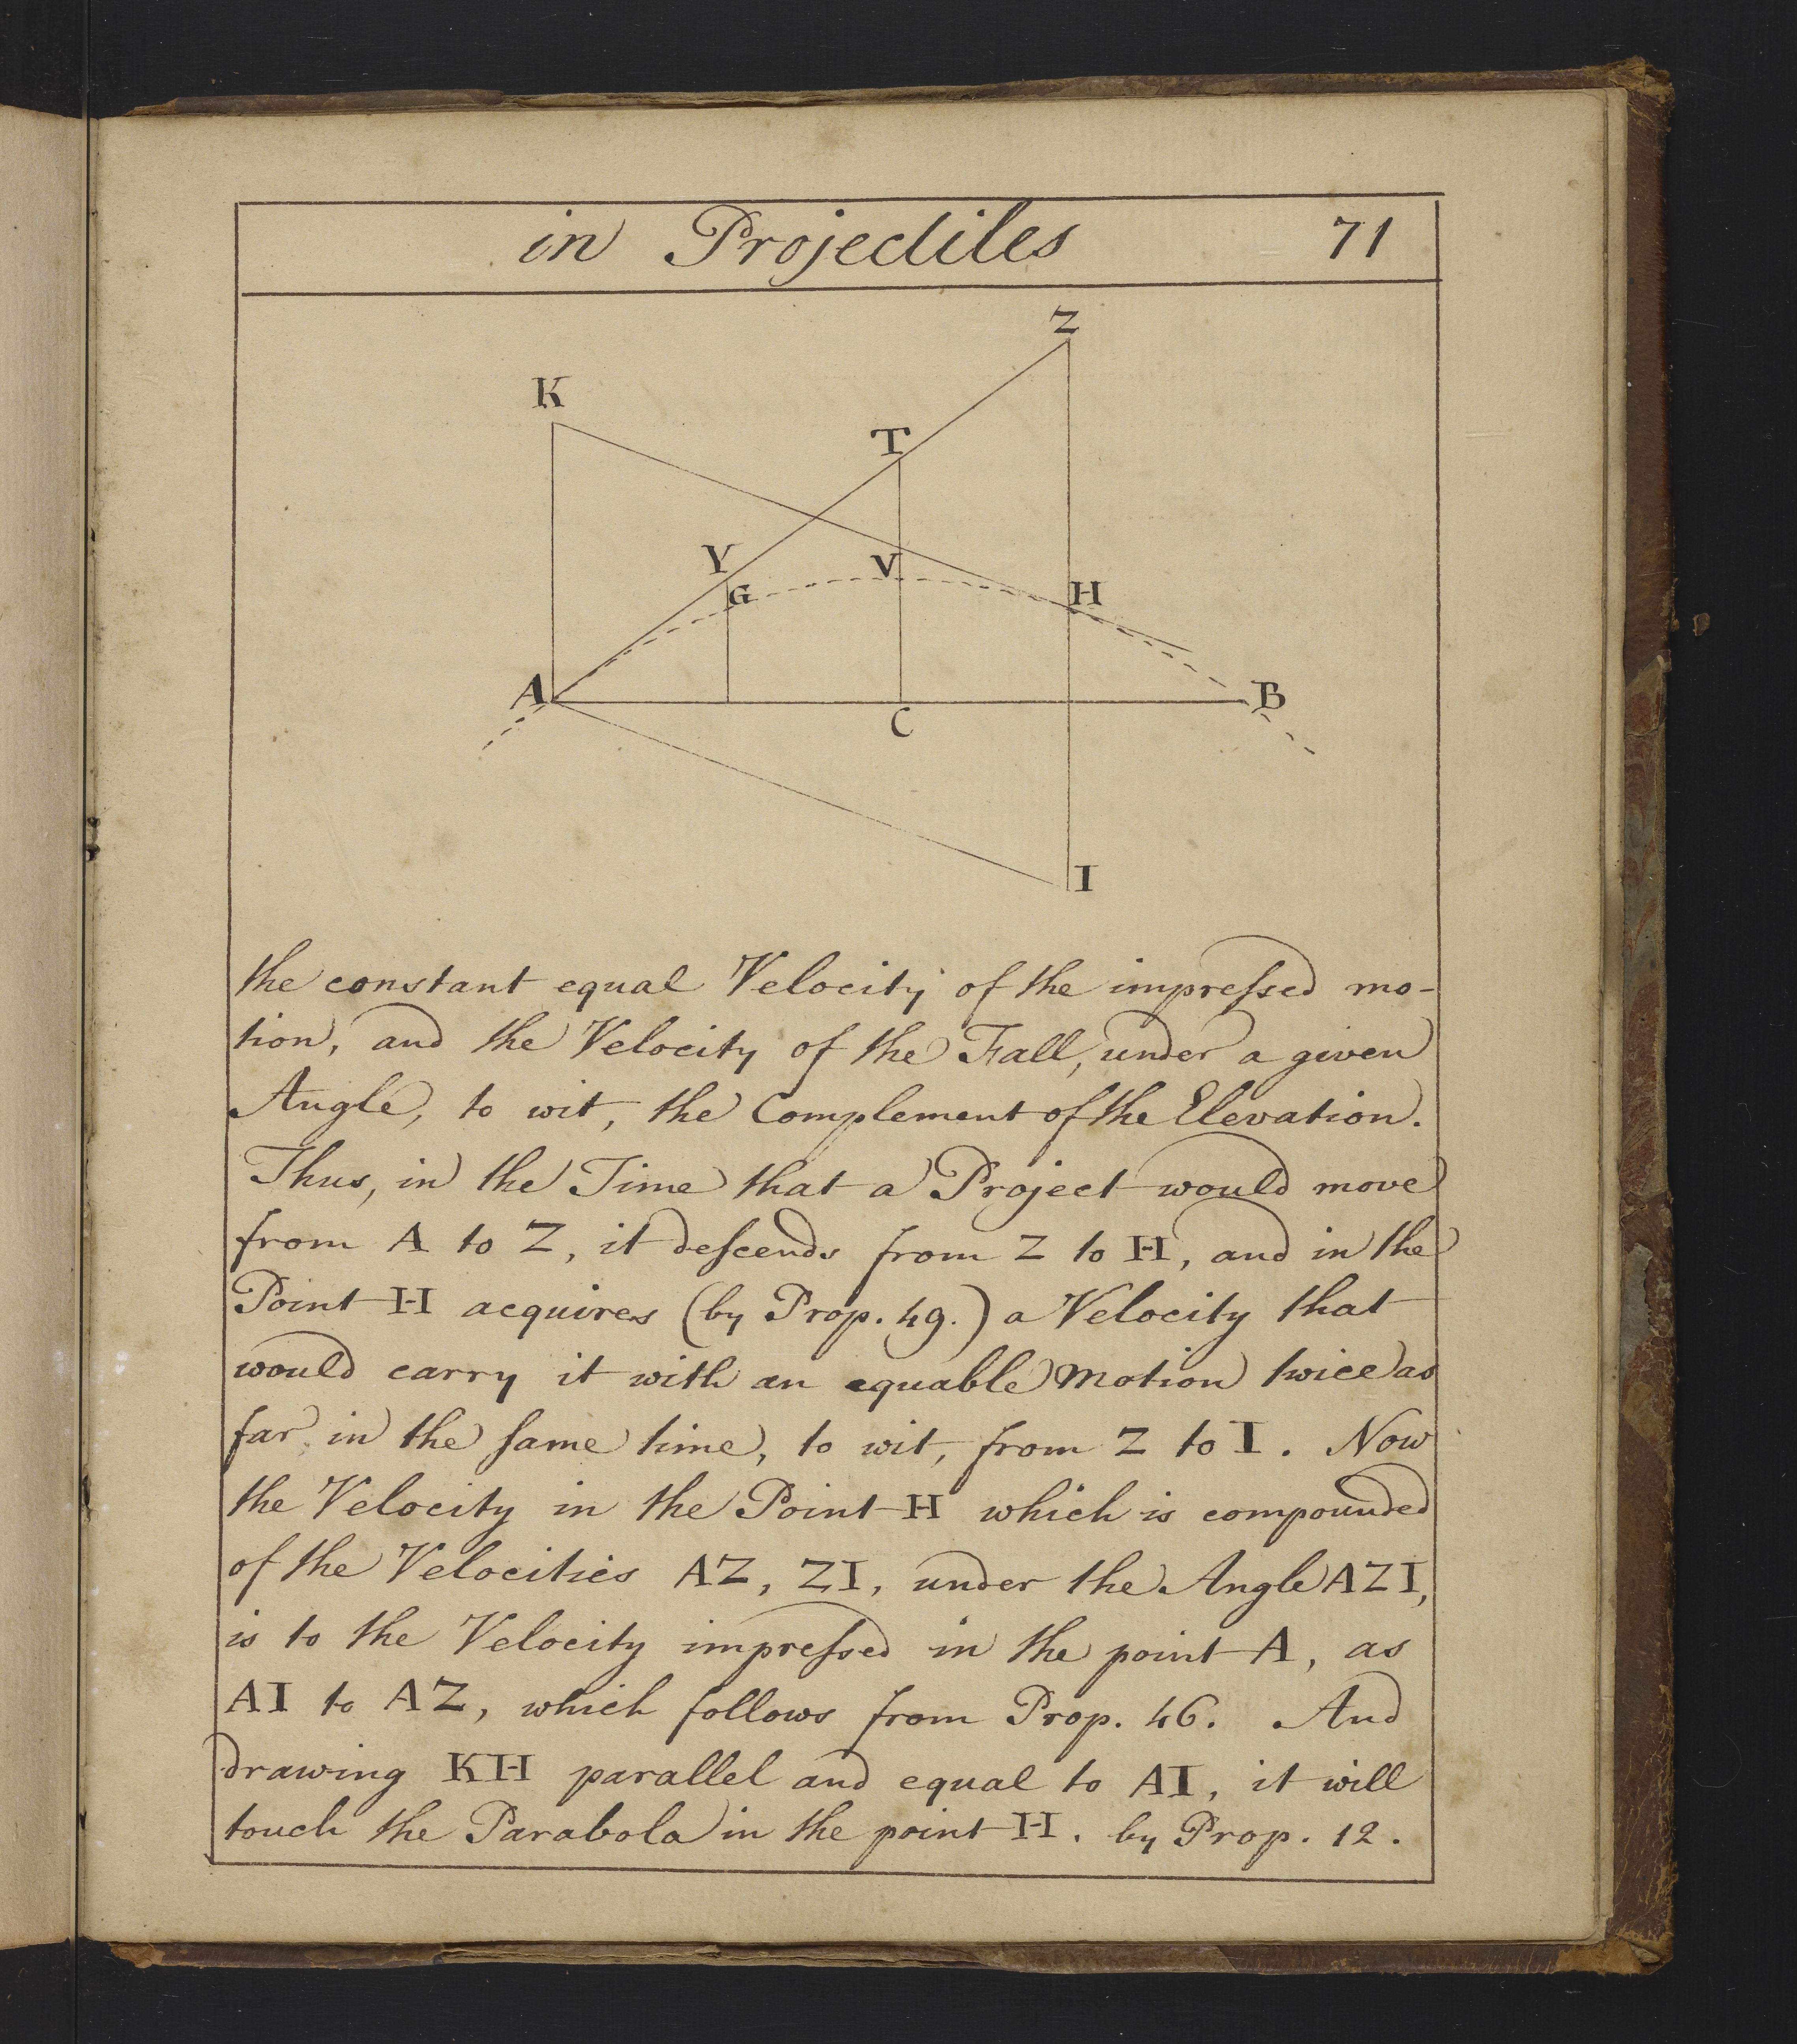 in Projectiles 71
Z
K
T
Y
V
G
H
A
B
C
I
the constant equal Velocity of the impreſsed mo-
tion, and the Velocity of the Fall, under a given
Angle, to wit, the Complement of the Elevation.
Thus, in the Time that a Project would move
from A to Z, it deſcends from Z to H, and in the
Point H acquires (by Prop. 49.) a Velocity that
would carry it with an equable Motion twice as
far in the ſame time, to wit, from Z to I. Now
the Velocity in the Point H which is compounded
of the Velocities AZ, ZI, under the Angle AZI,
is to the Velocity impreſsed in the point A, as
AI to AZ, which follows from Prop. 46. And
drawing KH parallel and equal to AI, it will
touch the Parabola in the point H. by Prop. 12.